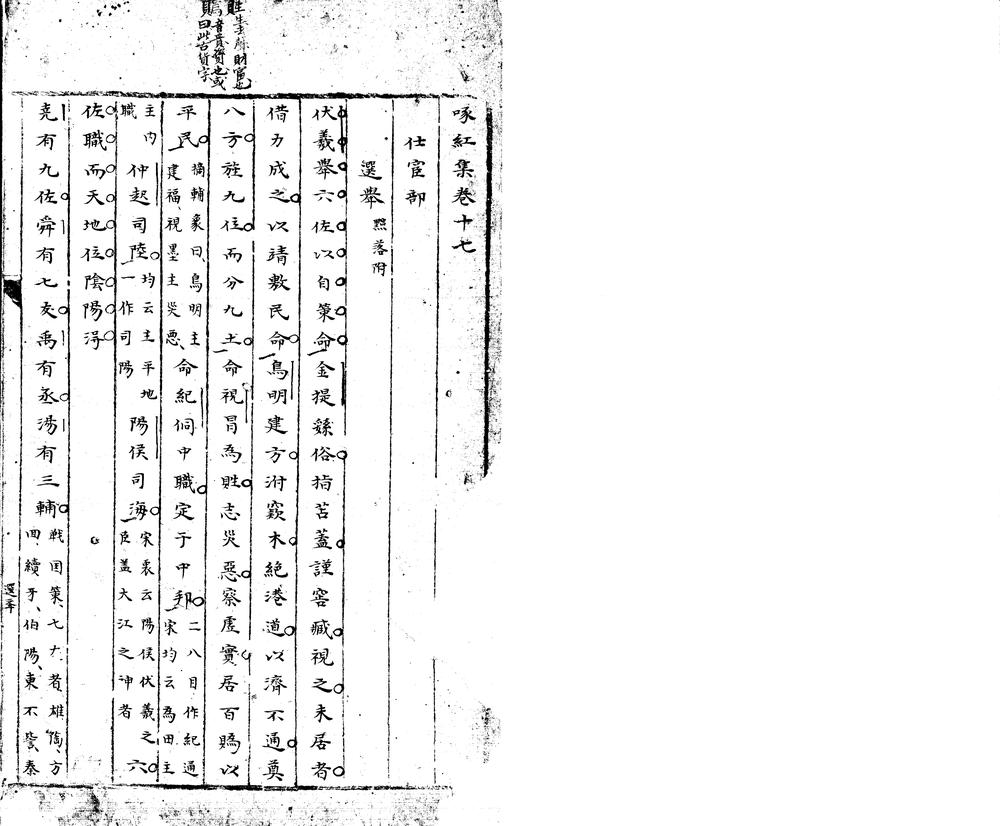 啄紅集卷十七
仕宦部
選舉 黜落附
伏羲舉六佐以自策命金提繇俗指苫蓋謹窖臧視之未居者
借力成之以靖敷民命鳥明建方泭窾木絶港道以濟不通奠
八方旌九位而分九土命視冒為貹志災惡察虛實居百賜以
平民 摘輔象曰鳥明主
建福視墨主災惡 命紀侗中職定于中邦 二八目作紀通
宋均云為田主
主内
職 仲起司陸 均云主平地
一作司陽 陽侯司海 宋衷云陽侯伏羲之
臣盖大江之神者 六
佐職而天地位陰陽淂
堯有九佐舜有七友禹有丞湯有三輔 戰国策七友者雄陶方
回續牙伯陽東不訾秦
選舉
貹 財富也
音貴資也或
曰此古貨字